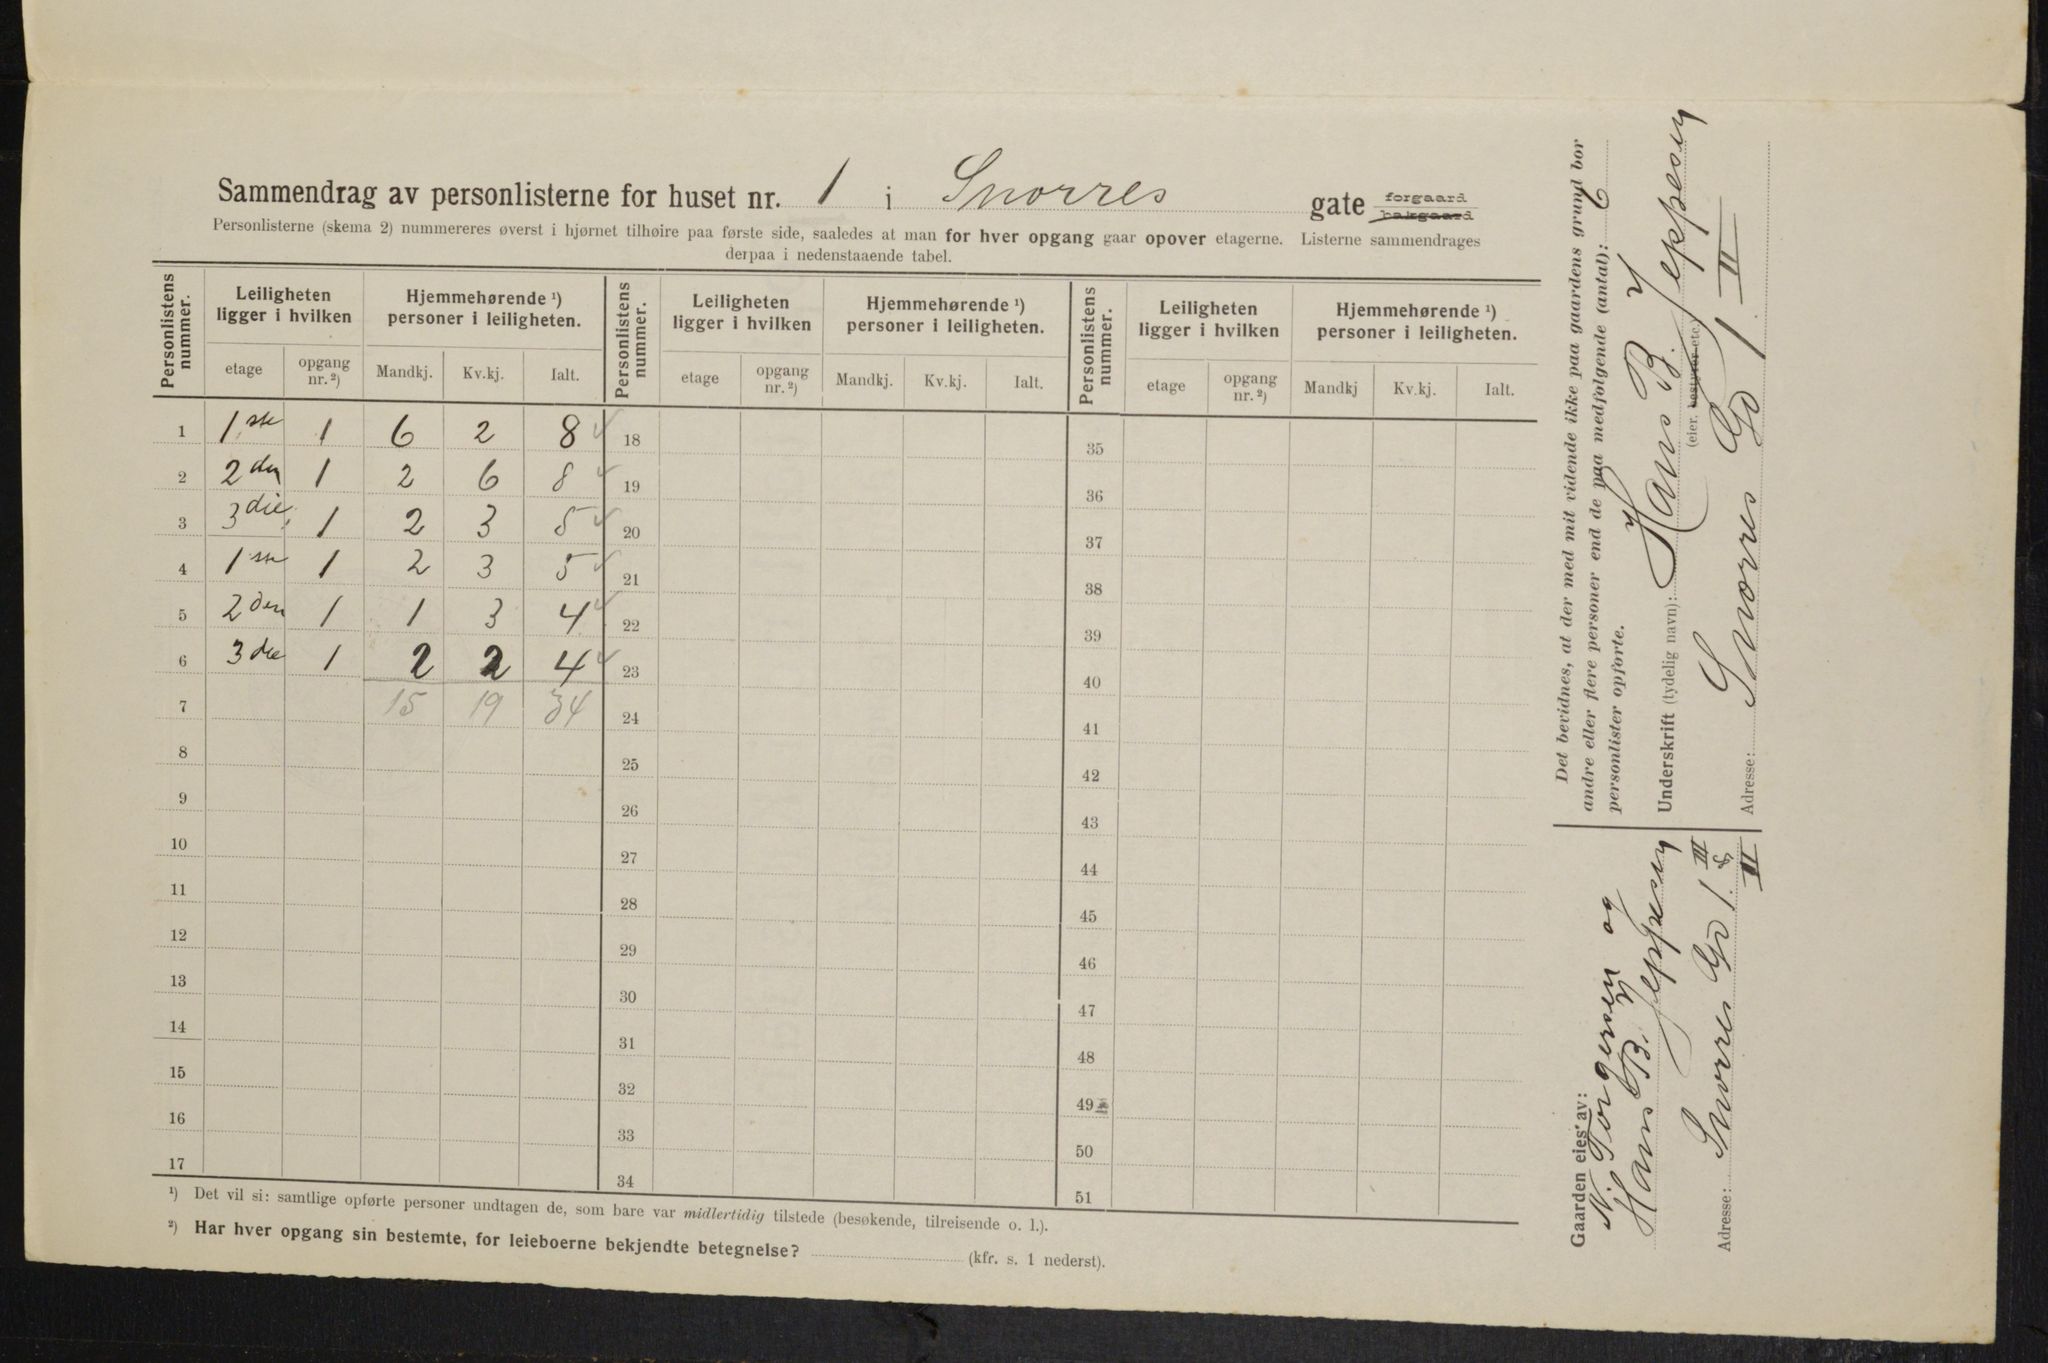 Sammendrag av personlisterne for huset nr. 1 i Snorres gate forgaard bakgaard
Personlisterne (skema 2) nummereres øverst i hjørnet tilhøire paa første side, saaledes at man for hver opgang gaar opover etagerne. Listerne sammendrages
derpaa i nedenstaaende tabel.
Personlistens nummer. Leiligheten ligger i hvilken Hjemmehørende ¹) personer i leiligheten. Personlistens nummer. Leiligheten ligger i hvilken Hjemmehørende ¹) personer i leiligheten. Personlistens nummer. Leiligheten ligger i hvilken Hjemmehørende ¹) personer i leiligheten.
etage opgang nr. ²) Mandkj. Kv.kj. Ialt. etage opgang nr. ²) Mandkj. Kv.kj. Ialt. etage opgang nr. ²) Mandkj Kv.kj. Ialt.
1 1ste 1 6 2 8 18 35
2 2den 1 2 6 8 19 36
3 3die 1 2 3 5 20 37
4 1ste 1 2 3 5 21 38
5 2den 1 1 3 4 22 39
6 3die 1 2 2 4 23 40
7 15 19 34 24 41
8 25 42
9 26 43
10 27 44
11 28 45
12 29 46
13 30 47
14 31 48
15 32 49
16 33 50
17 34 51
¹) Det vil si: samtlige opførte personer undtagen de, som bare var midlertidig tilstede (besøkende, tilreisende o. l.).
²) Har hver opgang sin bestemte, for leieboerne bekjendte betegnelse? (kfr. s. 1 nederst).
Det bevidnes, at der med mit vidende ikke paa gaardens grund bor
andre eller flere personer end de paa medfølgende (antal): 6
personlister opførte.
Underskrift (tydelig navn): Hans B. Jeppesen
(eier, bestyrer etc.)
Adresse: Snorres Gd 1 II
Gaarden eies av:
N. Torgersen og
Hans B. Jeppesen
Adresse: Snorres Gd 1. III & II